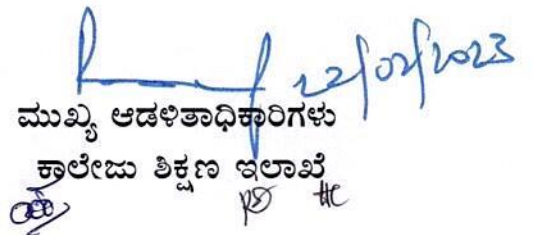 22/02/2023
ಮುಖ್ಯ ಆಡಳಿತಾಧಿಕಾರಿಗಳು
ಕಾಲೇಜು ಶಿಕ್ಷಣ ಇಲಾಖೆ